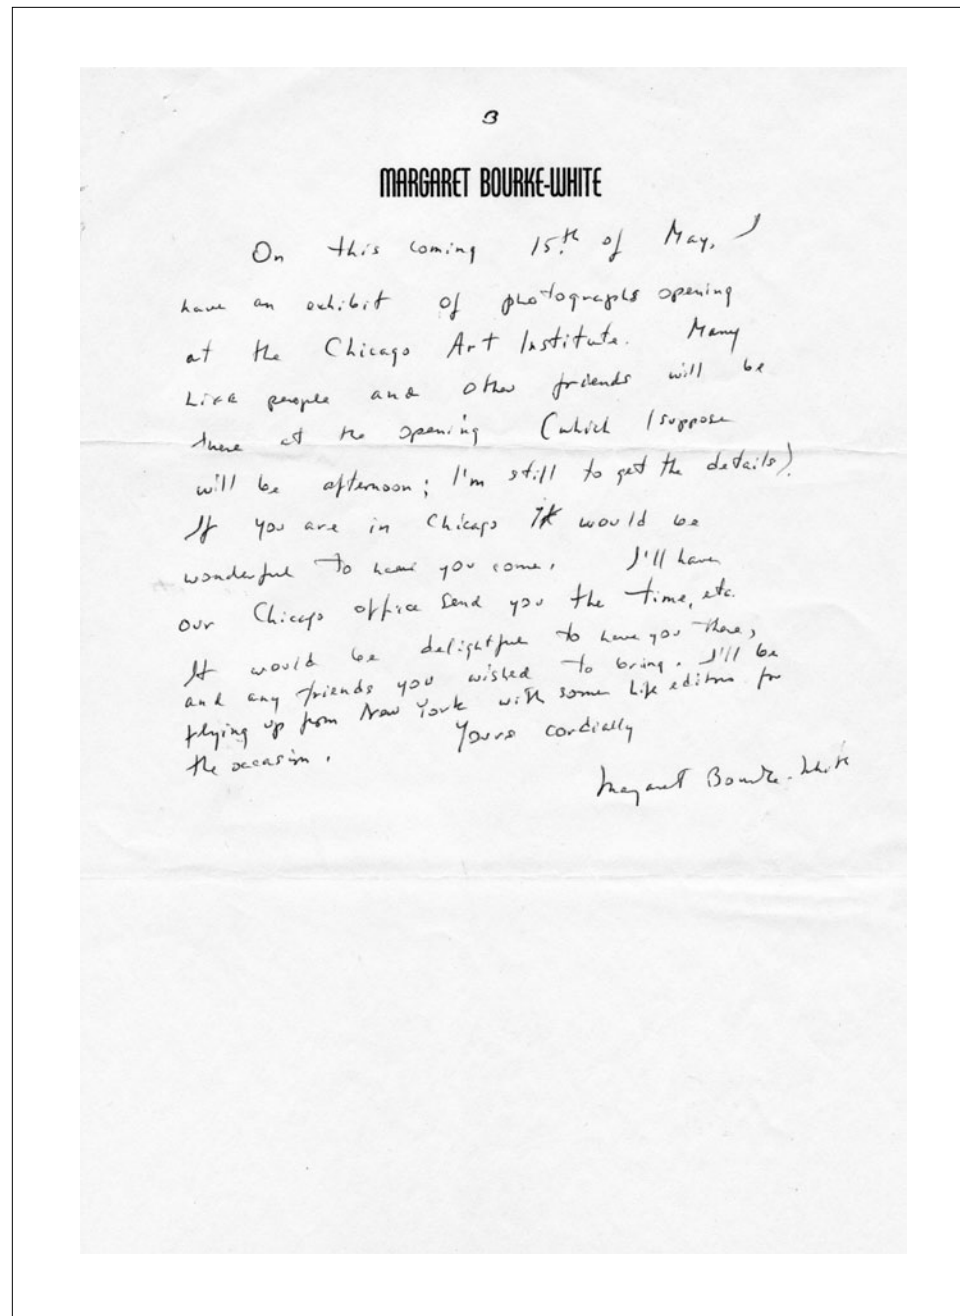 3
MARGARET BOURKE-WHITE
On this coming 15th of May, I
have an exhibit of photographs opening
at the Chicago Art Institute. Many
Life people and other friends will be
there at the opening (which I suppose
will be afternoon; I'm still to get the details).
If you are in Chicago it would be
wonderful to have you come. I'll have
our Chicago office send you the time, etc.
It would be delightful to have you there,
and any friends you wished to bring. I'll be
flying up from New York with some Life editors for
the occasion. Yours cordially
Margaret Bourke-White